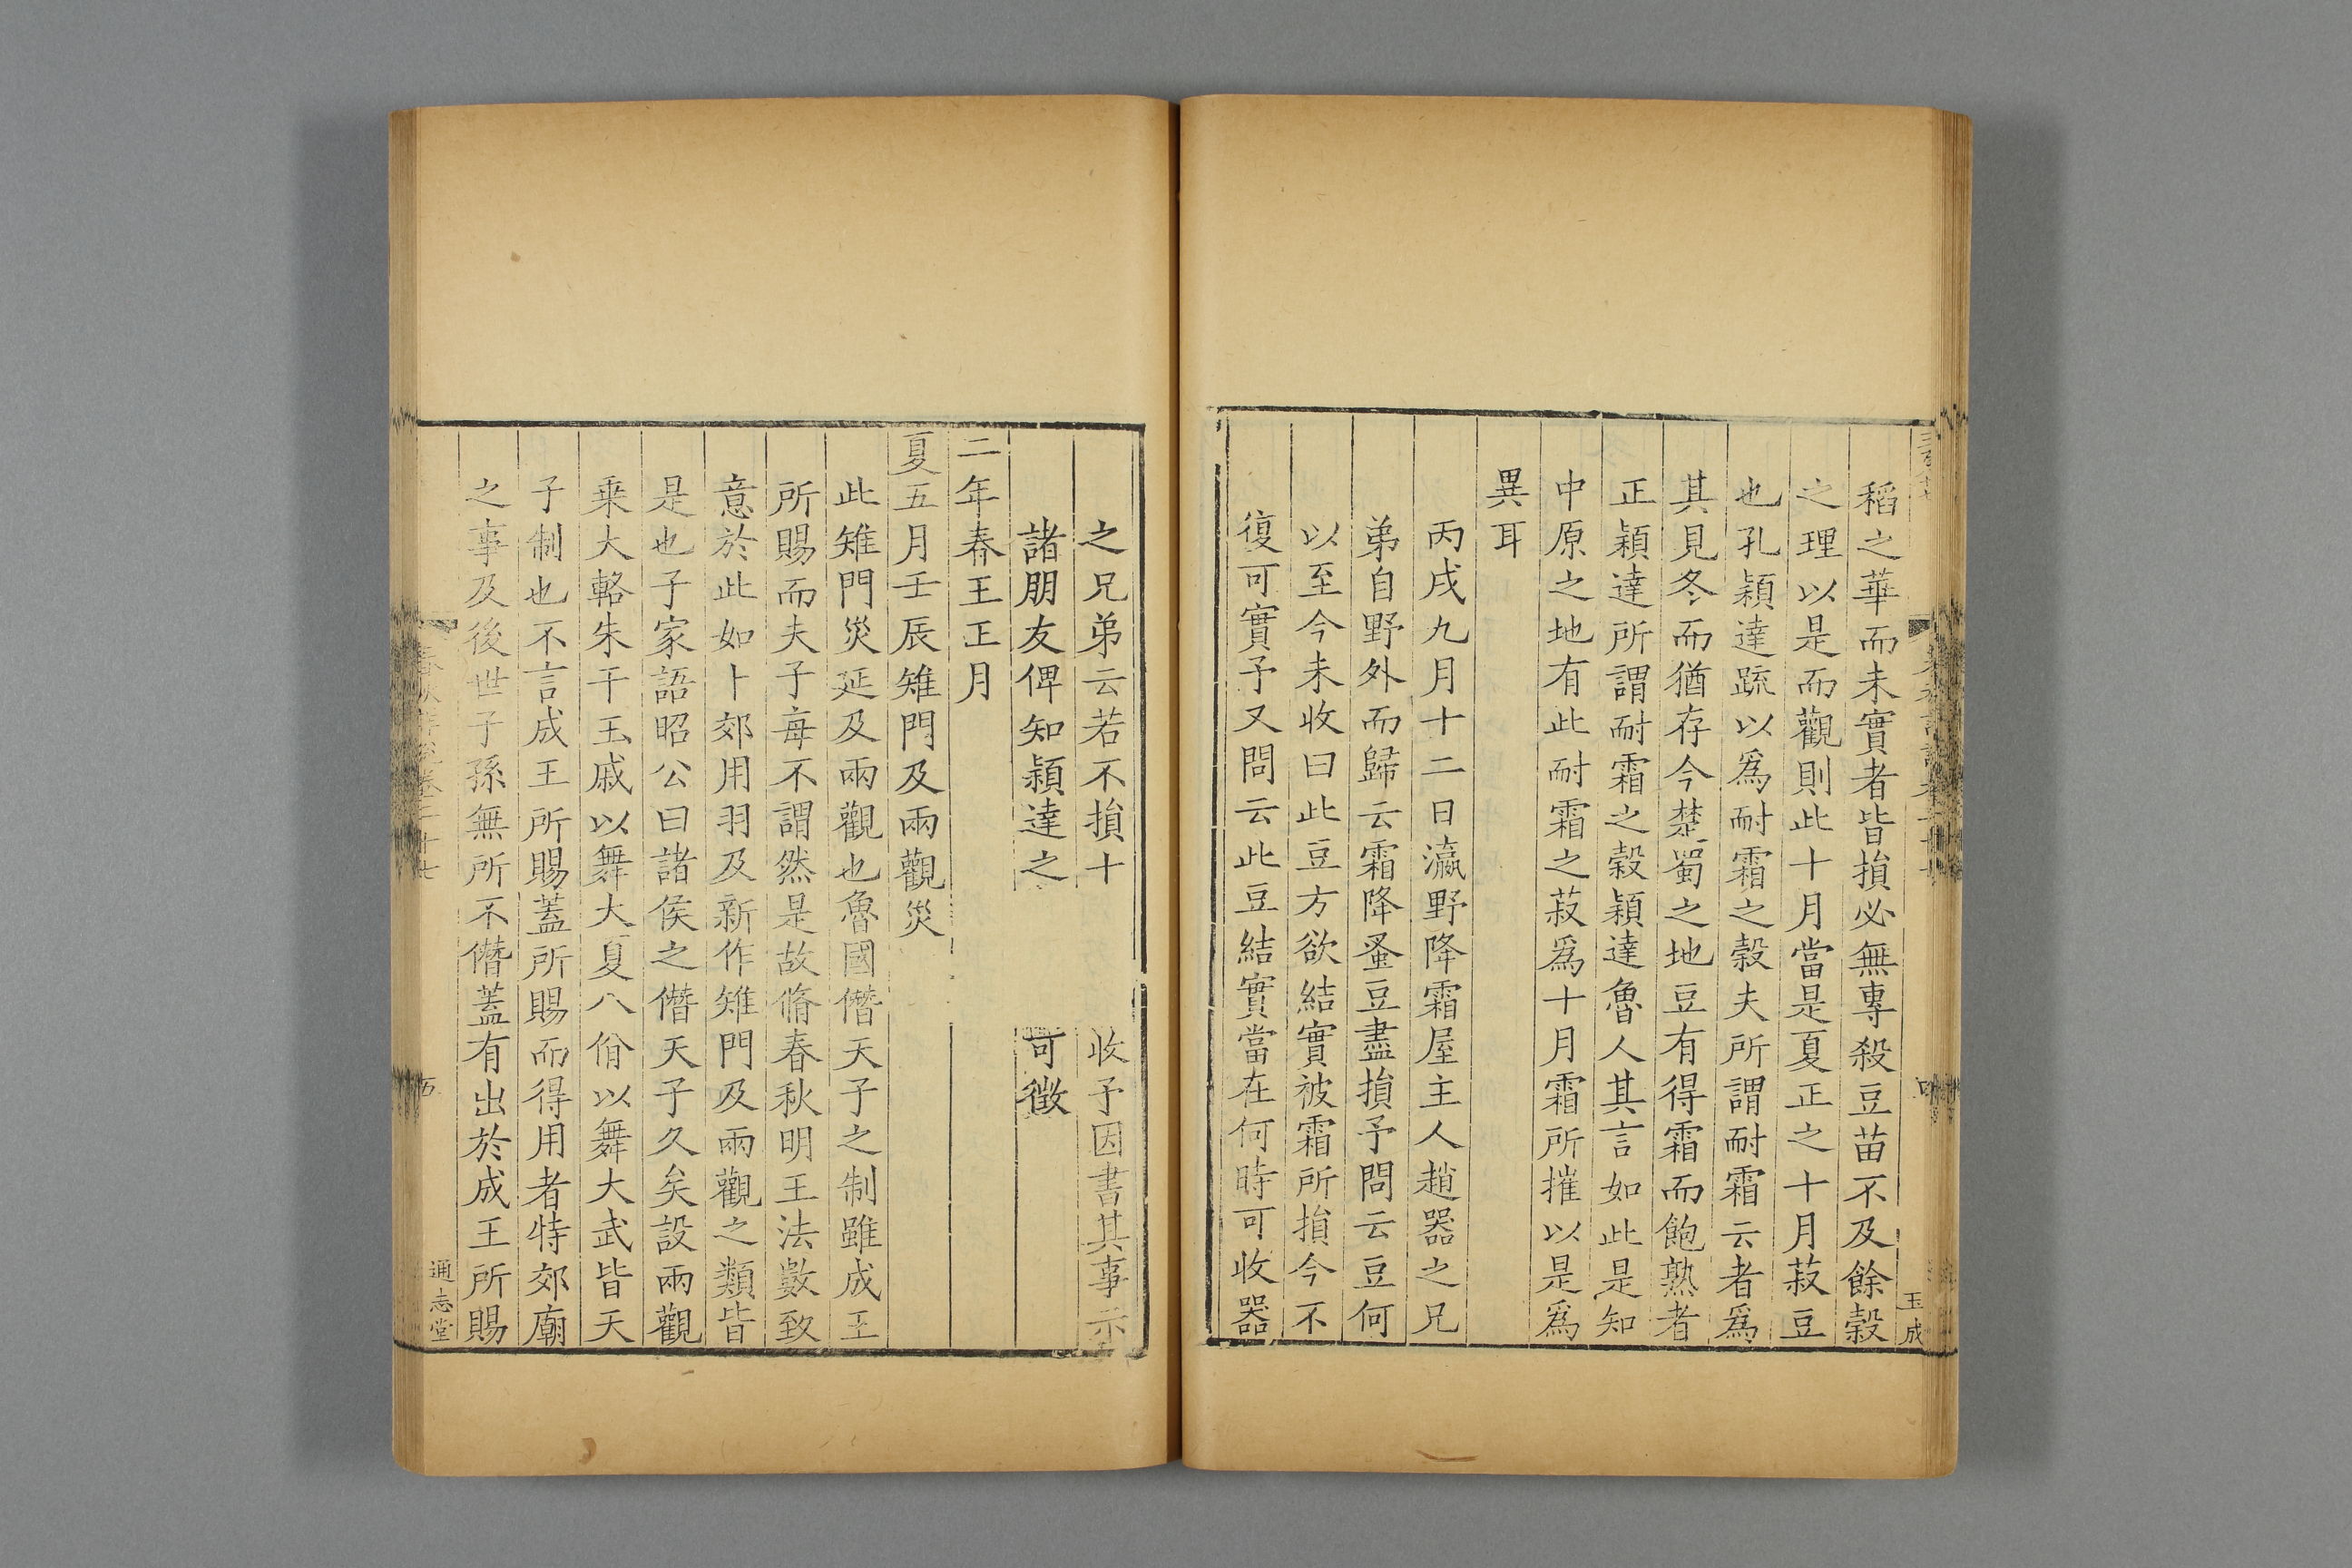 稻之華而未實者皆損必無專殺豆苗不及餘穀
之理以是而觀則此十月當是夏正之十月菽豆
也孔穎達疏以爲耐霜之穀夫所謂耐霜云者爲
其見冬而猶存今楚蜀之地豆有得霜而飽熟者
正穎達所謂耐霜之穀穎達魯人其言如此是知
中原之地有此耐霜之菽爲十月霜所摧以是爲
異耳
丙戌九月十二日瀛野降霜屋主人趙器之兄
弟自野外而歸云霜降蚤豆盡損予問云豆何
以至今未收曰此豆方欲結實被霜所損今不
復可實予又問云此豆結實當在何時可收器
玉成
之兄弟云若不損十
收予因書其事示
諸朋友俾知穎達之
可徵
二年春王正月
夏五月壬辰雉門及兩觀災
此雉門災延及兩觀也魯國僭天子之制雖成王
所賜而夫子每不謂然是故脩春秋明王法數致
意於此如卜郊用羽及新作雉門及兩觀之類皆
是也子家語昭公曰諸侯之僭天子久矣設兩觀
乘大輅朱干玉戚以舞大夏八佾以舞大武皆天
子制也不言成王所賜蓋所賜而得用者特郊廟
之事及後世子孫無所不僭蓋有出於成王所賜
五
通志堂